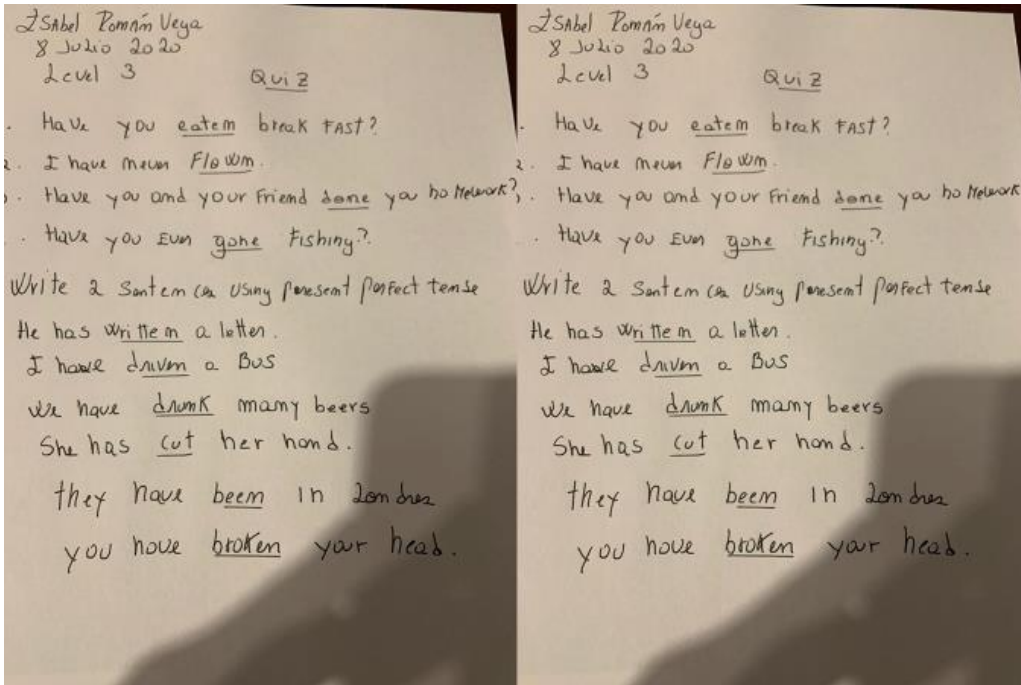 Isabel Román Vega
8 Julio 2020
Level 3
Quiz
. Have you eaten breakfast?
2. I have never flown.
. Have you and your friend done you homework?
. Have you ever gone fishing?.
Write 2 sentences using present perfect tense
He has written a letter.
I have driven a Bus
We have drunk many beers
She has cut her hand.
they have been in Londres
you have broken your head.
Isabel Román Vega
8 Julio 2020
Level 3
Quiz
. Have you eaten breakfast?
2. I have never flown.
. Have you and your friend done you homework
. Have you ever gone fishing?.
Write 2 sentences using present perfect tense
He has written a letter.
I have driven a Bus
We have drunk many beers
She has cut her hand.
they have been in Londres
you have broken your head.